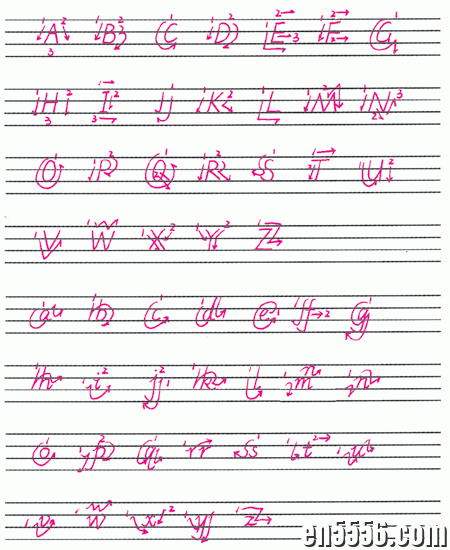 A B C D E F G
H I J K L M N
O P Q R S T U
V W X Y Z
a b c d e f g
h i j k l m n
o p q r s t u
v w x y z
en5556.com